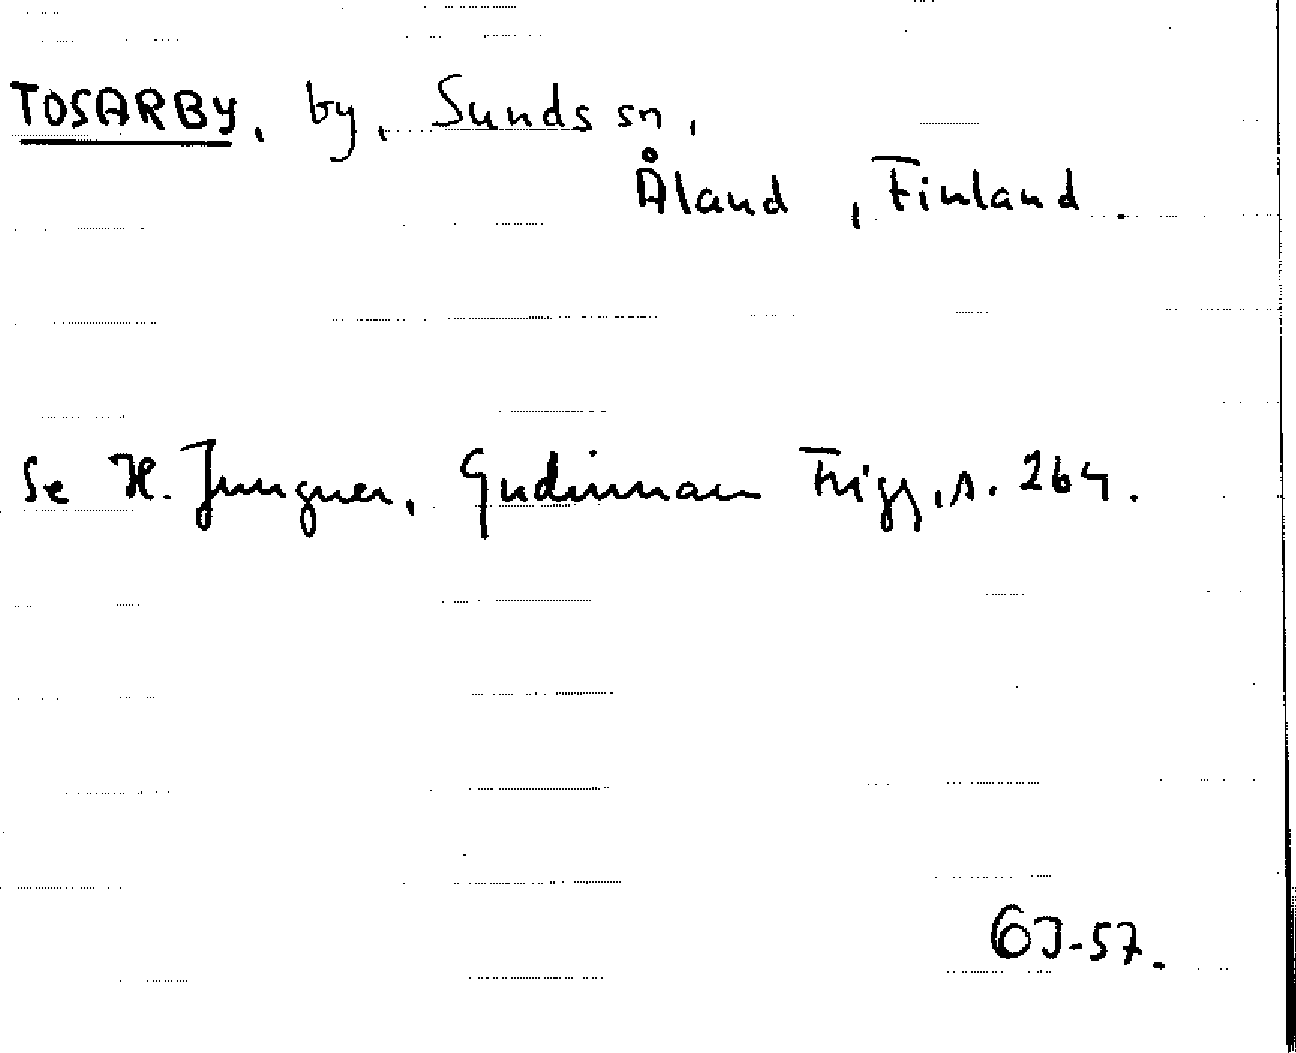 TOSARBY, by, Sunds sn,
Åland, Finland.
Se H. Jungner, Gudinnan Frigg, s. 264.
GJ-57.